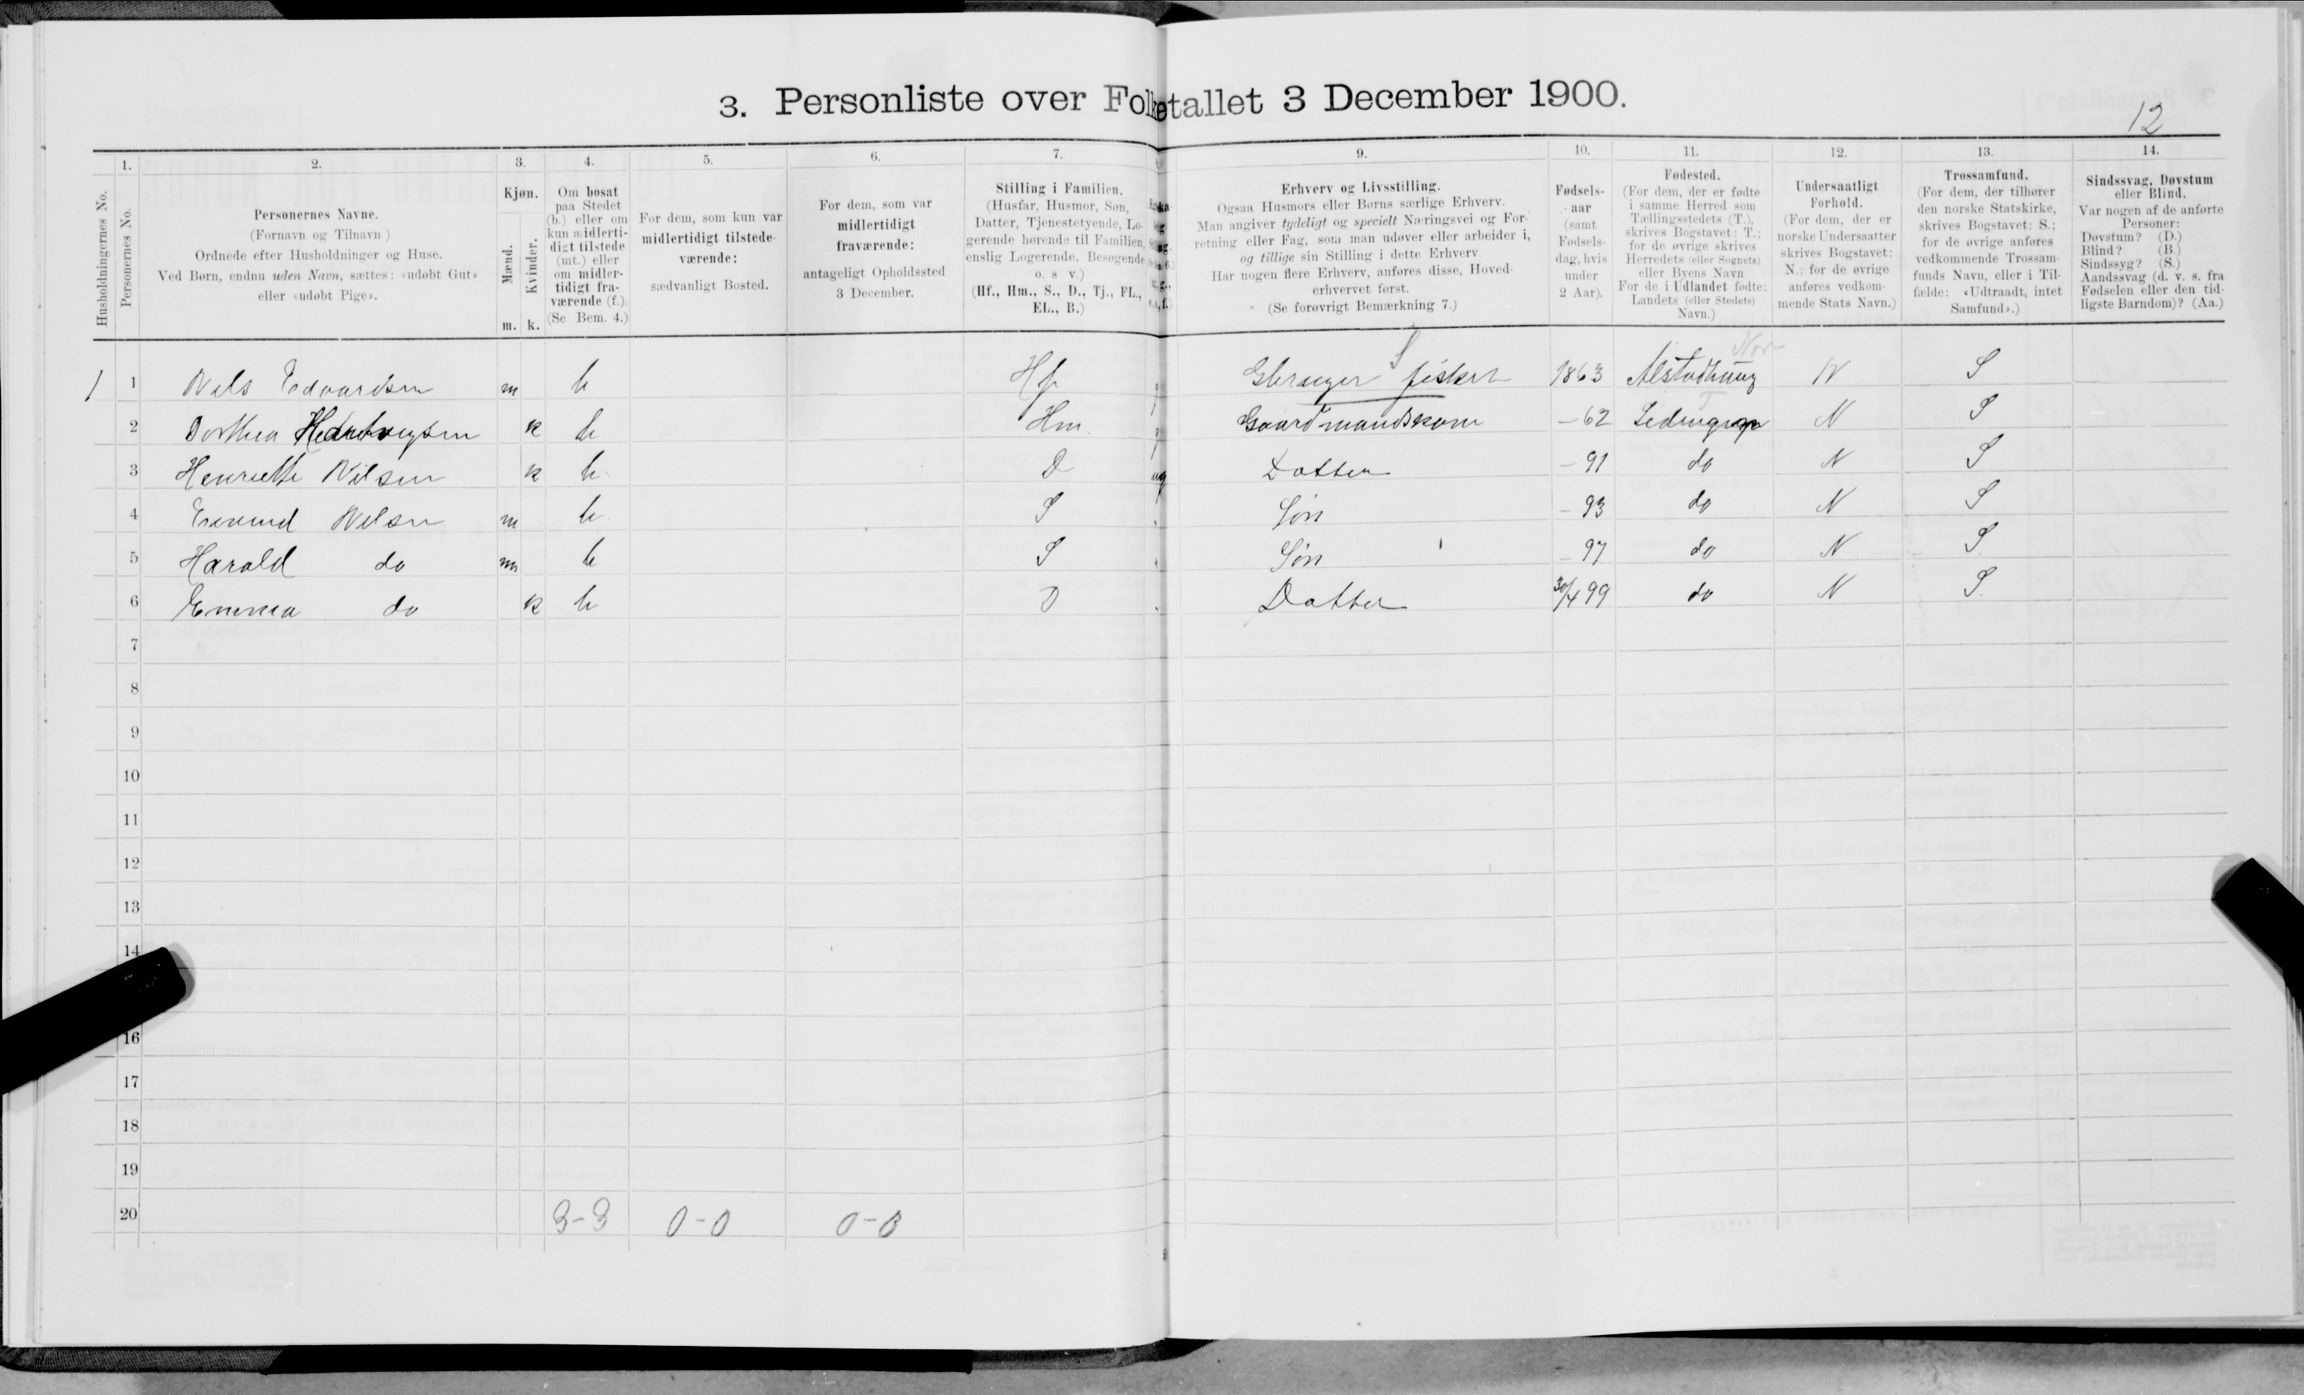 3. Personliste over Folketallet 3 December 1900.
12
1. 2. 3. 4. 5. 6. 7. 9. 10. 11. 12. 13. 14.
Husholdningernes No.
Personernes No.
Personernes Navne.
(Fornavn og Tilnavn )
Ordnede efter Husholdninger og Huse.
Ved Børn, endnu uden Navn, sættes: «udøbt Gut»
eller «udøbt Pige».
Kjøn.
Mænd.
Kvinder.
m. k.
Om bosat
paa Stedet
(b.) eller om
kun midlerti-
digt tilstede
(mt.) eller
om midler-
tidigt fra-
værende (f.).
(Se Bem. 4.)
For dem, som kun var
midlertidigt tilstede-
værende:
sædvanligt Bosted.
For dem, som var
midlertidigt
fraværende:
antageligt Opholdssted
3 December.
Stilling i Familien.
(Husfar, Husmor, Søn,
Datter, Tjenestetyende, Lo-
gerende hørende til Familien,
enslig Logerende, Besøgende
o. s v.)
(Hf., Hm., S., D., Tj., FL.,
EL., B.)
Erhverv og Livsstilling.
Ogsaa Husmors eller Børns særlige Erhverv.
Man angiver tydeligt og specielt Næringsvei og For-
retning eller Fag, som man udøver eller arbeider i,
og tillige sin Stilling i dette Erhverv.
Har nogen flere Erhverv, anføres disse, Hoved-
erhvervet først.
(Se forøvrigt Bemærkning 7.)
Fødsels-
aar
(samt
Fødsels-
dag, hvis
under
2 Aar).
Fødested.
(For dem, der er fødte
i samme Herred som
Tællingsstedets (T.),
skrives Bogstavet: T.;
for de øvrige skrives
Herredets (eller Sognets)
eller Byens Navn
For de i Udlandet fødte:
Landets (eller Stedets)
Navn.)
Undersaatligt
Forhold.
(For dem, der er
norske Undersaatter
skrives Bogstavet:
N.; for de øvrige
anføres vedkom-
mende Stats Navn.)
Trossamfund.
(For dem, der tilhører
den norske Statskirke,
skrives Bogstavet: S.;
for de øvrige anføres
vedkommende Trossam-
funds Navn, eller i Til-
fælde: «Udtraadt, intet
Samfund».)
Sindssvag, Døvstum
eller Blind.
Var nogen af de anførte
Personer:
Døvstum? (D.)
Blind? (B.)
Sindssyg? (S.)
Aandssvag (d. v. s. fra
Fødselen eller den tid-
ligste Barndom)? (Aa.)
S Nor
1 1 Nils Edvardsen m b Hf g fisker 1863 Alstadhaug N S
2 Dorthea k b Hm. g Gaardmandskone – 62 N S
3 Henriette Nilsen k b D ug Datter – 91 do N S
4 Nilsen m b S Søn – 93 do N S
5 Harald do m b S Søn – 97 do N S
6 Emma do k b D Datter 30/4 99 do N S
7
8
9
10
11
12
13
14
16
17
18
19
20 3-3 0-0 0-0